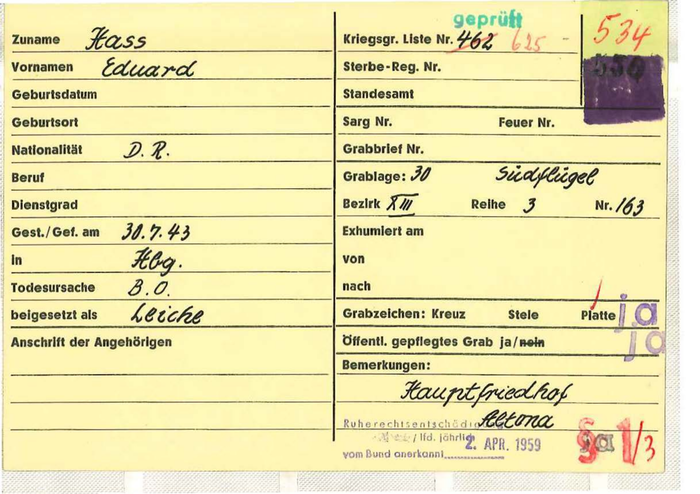 Zuname Hass
Vornamen Eduard
Geburtsdatum
Geburtsort
Nationalität D. R.
Beruf
Dienstgrad
Gest./Gef. am 30.7.43
in Hbg.
Todesursache B.O.
beigesetzt als Leiche
Anschrift der Angehörigen
geprüft
Kriegsgr. Liste Nr. 462 625 -
534
Sterbe-Reg. Nr.
Standesamt
Sarg Nr. Feuer Nr.
Grabbrief Nr.
Grablage: 30 Südflügel
Bezirk XIII Reihe 3 Nr. 163
Exhumiert am
von
nach
Grabzeichen: Kreuz Stele Platte ja
Öffentl. gepflegtes Grab ja/nein ja
Bemerkungen:
Hauptfriedhof
Altona
Ruherechtsentschädigung
/ lfd. jährlich
vom Bund anerkannt 2. APR. 1959
1/3